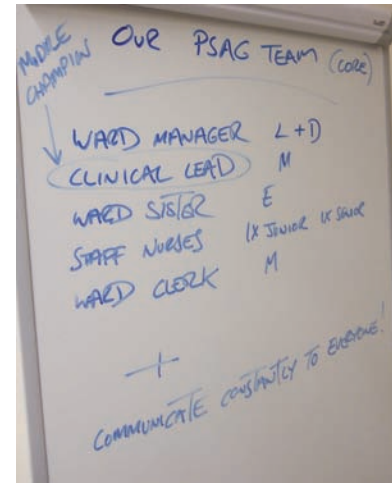 MODULE
CHAMPION
OUR PSAG TEAM (CORE)
WARD MANAGER L + D
CLINICAL LEAD M
WARD SISTER E
STAFF NURSES 1X JUNIOR 1X SENIOR
WARD CLERK M
+
COMMUNICATE CONSTANTLY TO EVERYONE!